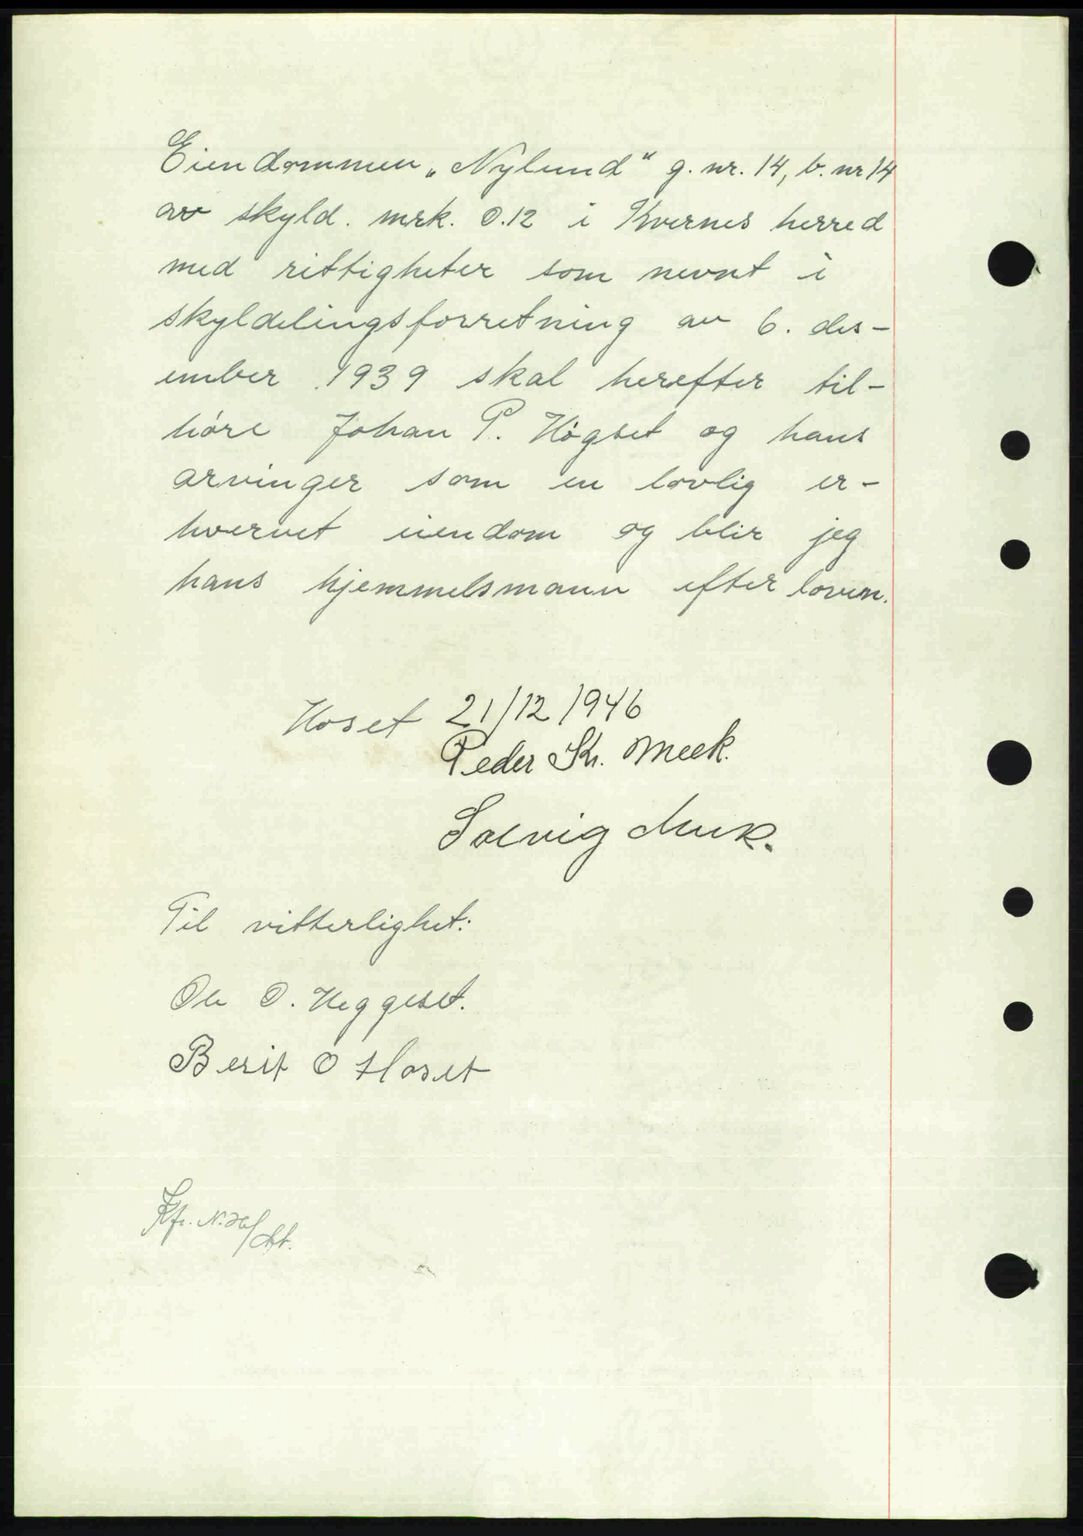 Eiendommen „Nylund“ g. nr. 14, b. nr 14
av skyld. mrk. 0.12 i Kvernes herred
med rettigheter som nevnt i
skyldelingsforretning av 6. des-
ember 1939 skal herefter til-
høre Johan P. Høgset og hans
arvinger som en lovlig er-
hvervet eiendom og blir jeg
hans hjemmelsmann efter loven.
Hoset 21/12 1946
Peder Kr. Meek.
Solvig Meek.
Til vitterlighet:
Ole O. Heggeset.
Berit O Hoset
Kfr.